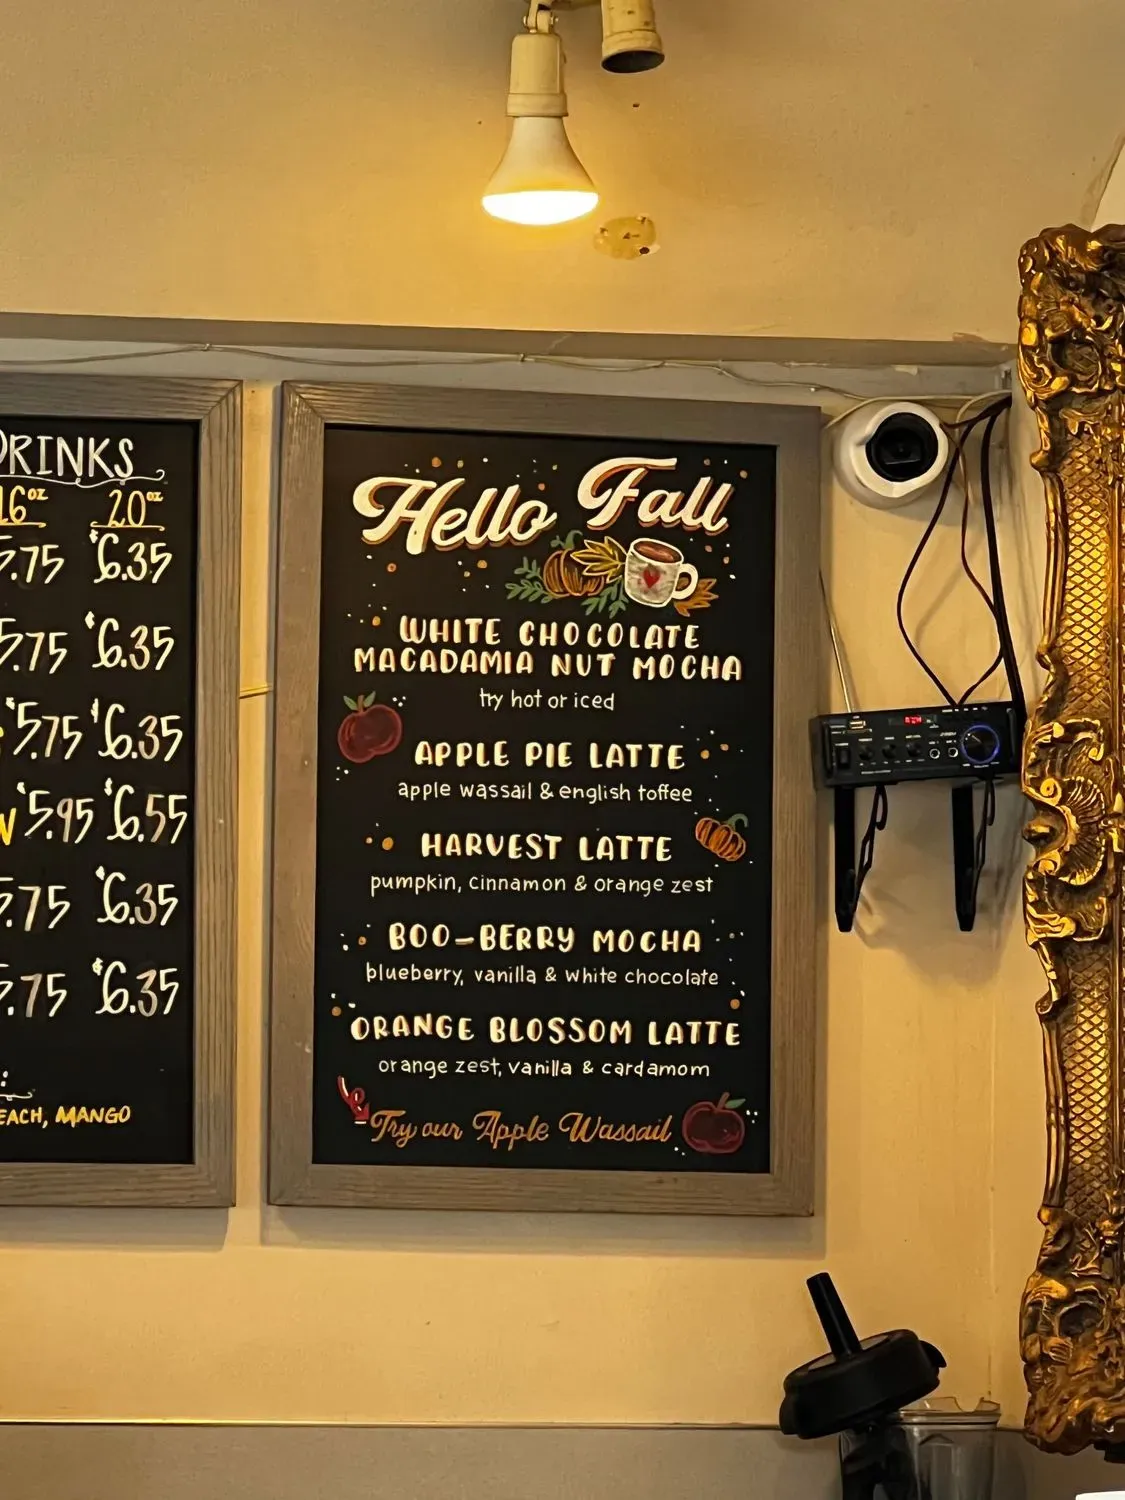 DRINKS
16oz 20oz
5.75 $6.35
5.75 $6.35
$5.75 $6.35
$5.95 $6.55
5.75 $6.35
5.75 $6.35
MANGO
Hello Fall
WHITE CHOCOLATE
MACADAMIA NUT MOCHA
try hot or iced
APPLE PIE LATTE
apple wassail & english toffee
HARVEST LATTE
pumpkin, cinnamon & orange zest
BOO-BERRY MOCHA
blueberry, vanilla & white chocolate
ORANGE BLOSSOM LATTE
orange zest, vanilla & cardamom
Try our Apple Wassail